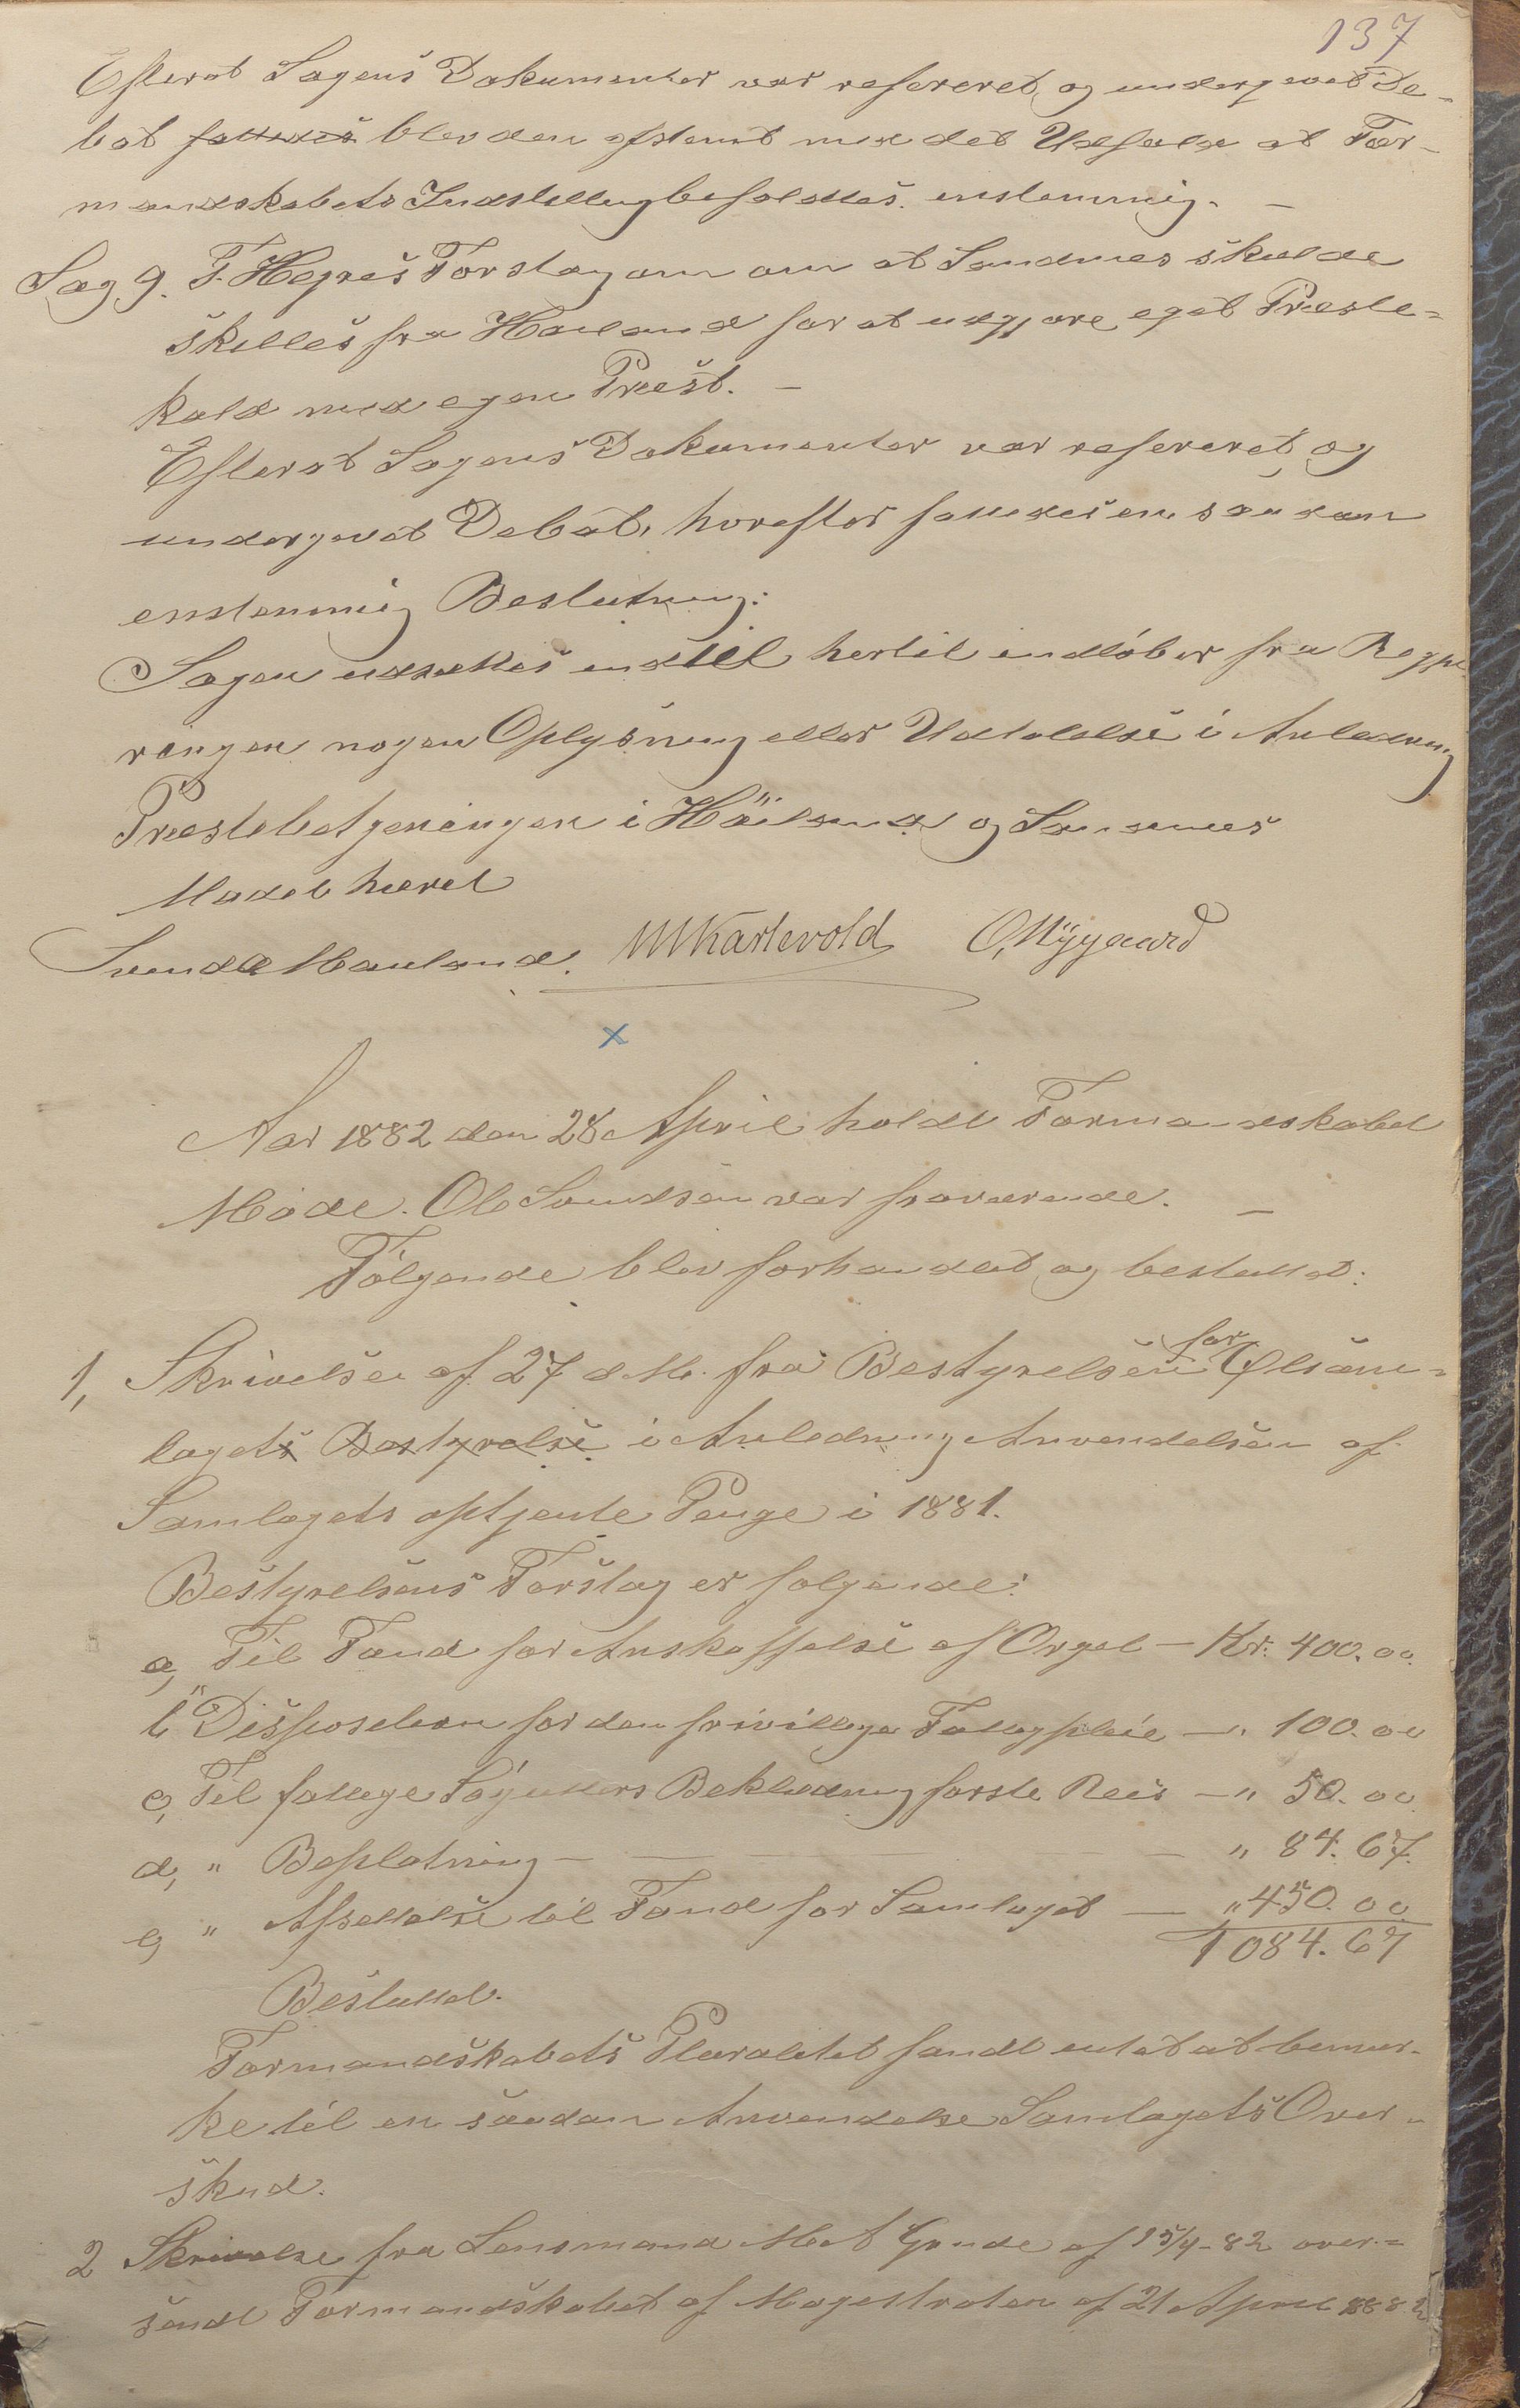 137
Efterat Sagens Dokumenter var refereret og undergivet De-
bat fattedes blev den afstemt med det Udfald at For-
mandskabets Indstilling befaldtes enstemmig. -
Sag 9. F. Hegres Forslag om om at Sandnes skulde
skilles fra Høiland for at udgjøre eget Præste-
kald med egen Præst. -
Efterat Sagens Dokumenter var refereret og
undergivet Debat, hvorefter fattedes en saadan
enstemmig Beslutning:
Sagen udsættes indtil hertil indløber fra Regje-
ringen nogen Oplysning eller Udtalelse i Anledning
Præstebetjeningen i Høiland og Sandnes
Mødet hævet
Svend Hauland. M Kartevold O, Nygaard
x
Aar 1882 den 28 April holdt Formandskabet
Møde. Ole Svendsen var fraværende. -
Følgende blev forhandlet og besluttet:
1, Skrivelse af 27 d. M. fra Bestyrelsen for Ølsam-
lagets Bestyrelse i Anledning Anvendelsen af
Samlagets optjente Penge i 1881.
Bestyrelsens Forslag er følgende:
a, Til Fond for Anskaffelse af Orgel - Kr. 400.00
b " Disposition for den frivillige Fattigpleie - " 100.00
c, Til fattige Sygutters Beklædning første Reis - " 50.00
d, " Beplantning - - - " 84.67
e, " Afsættelse til Fond for Samlaget - " 450.00
1084.67
Besluttet.
Formandskabets Pluralitet fandt intet at bemær-
ke til en saadan Anvendelse Samlagets Over-
skud.
2 Skrivelse fra Lensmand M A Grude af 15/4-82 over-
sendt Formandskabet af Magistraten af 21 April 1882